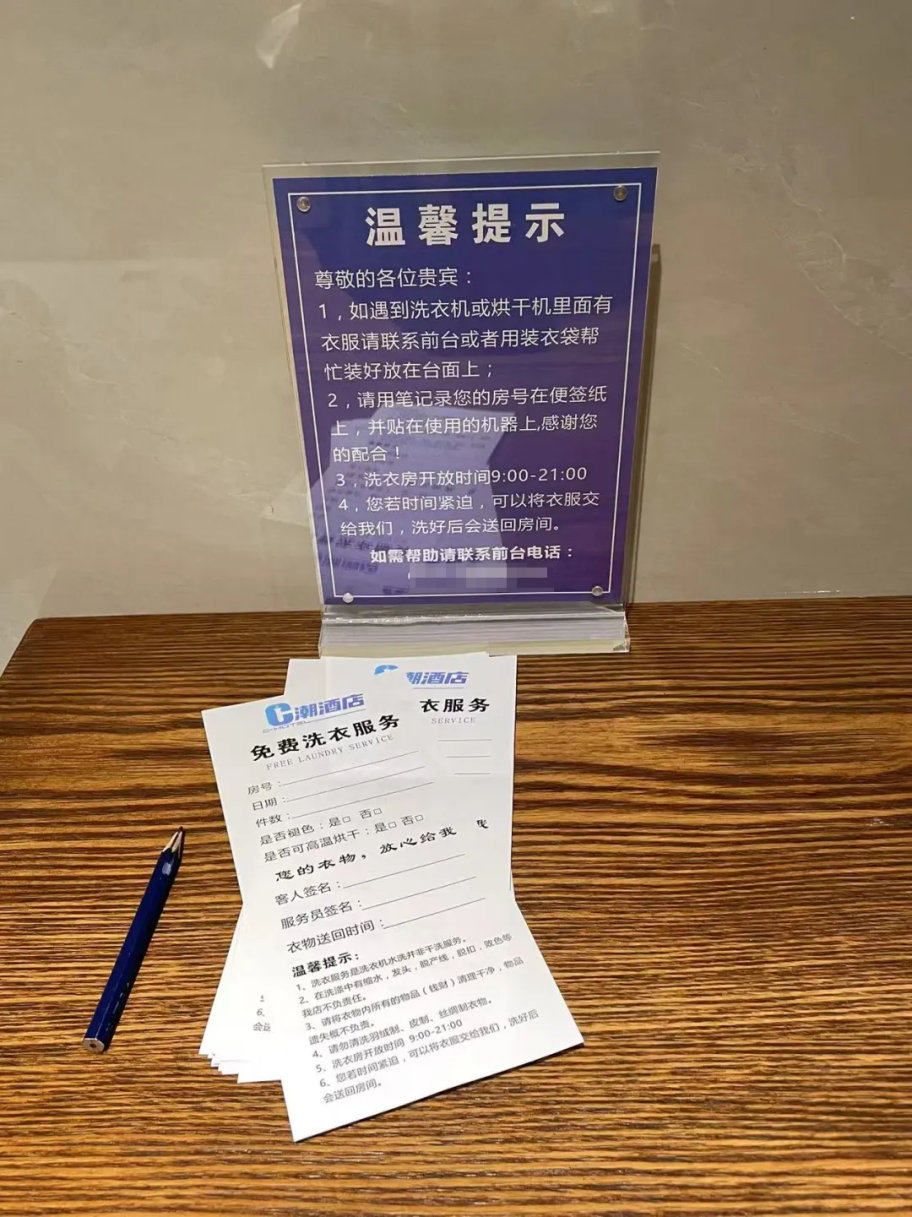 温馨提示
尊敬的各位贵宾：
1，如遇到洗衣机或烘干机里面有
衣服请联系前台或者用装衣袋帮
忙装好放在台面上；
2，请用笔记录您的房号在便签纸
上，并贴在使用的机器上,感谢您
的配合！
3，洗衣房开放时间9:00-21:00
4，您若时间紧迫，可以将衣服交
给我们，洗好后会送回房间。
如需帮助请联系前台电话：
潮酒店
衣服务
SERVICE
C潮酒店
免费洗衣服务
FREE LAUNDRY SERVICE
房号：
日期：
件数：
是否褪色：是□ 否□
是否可高温烘干：是□ 否□
您的衣物，放心给我
客人签名：
服务员签名：
衣物送回时间：
温馨提示：
1、洗衣服务是洗衣机水洗并非干洗服务。
2、在洗涤中有缩水，发头，脱产线，脱扣，败色等
我店不负责任。
3、请将衣物内所有的物品（钱财）清理干净，物品
遗失概不负责。
4、请勿清洗羽绒制、皮制、丝绸制衣物。
5、洗衣房开放时间 9:00-21:00
6、您若时间紧迫，可以将衣服交给我们，洗好后
会送回房间。
6、